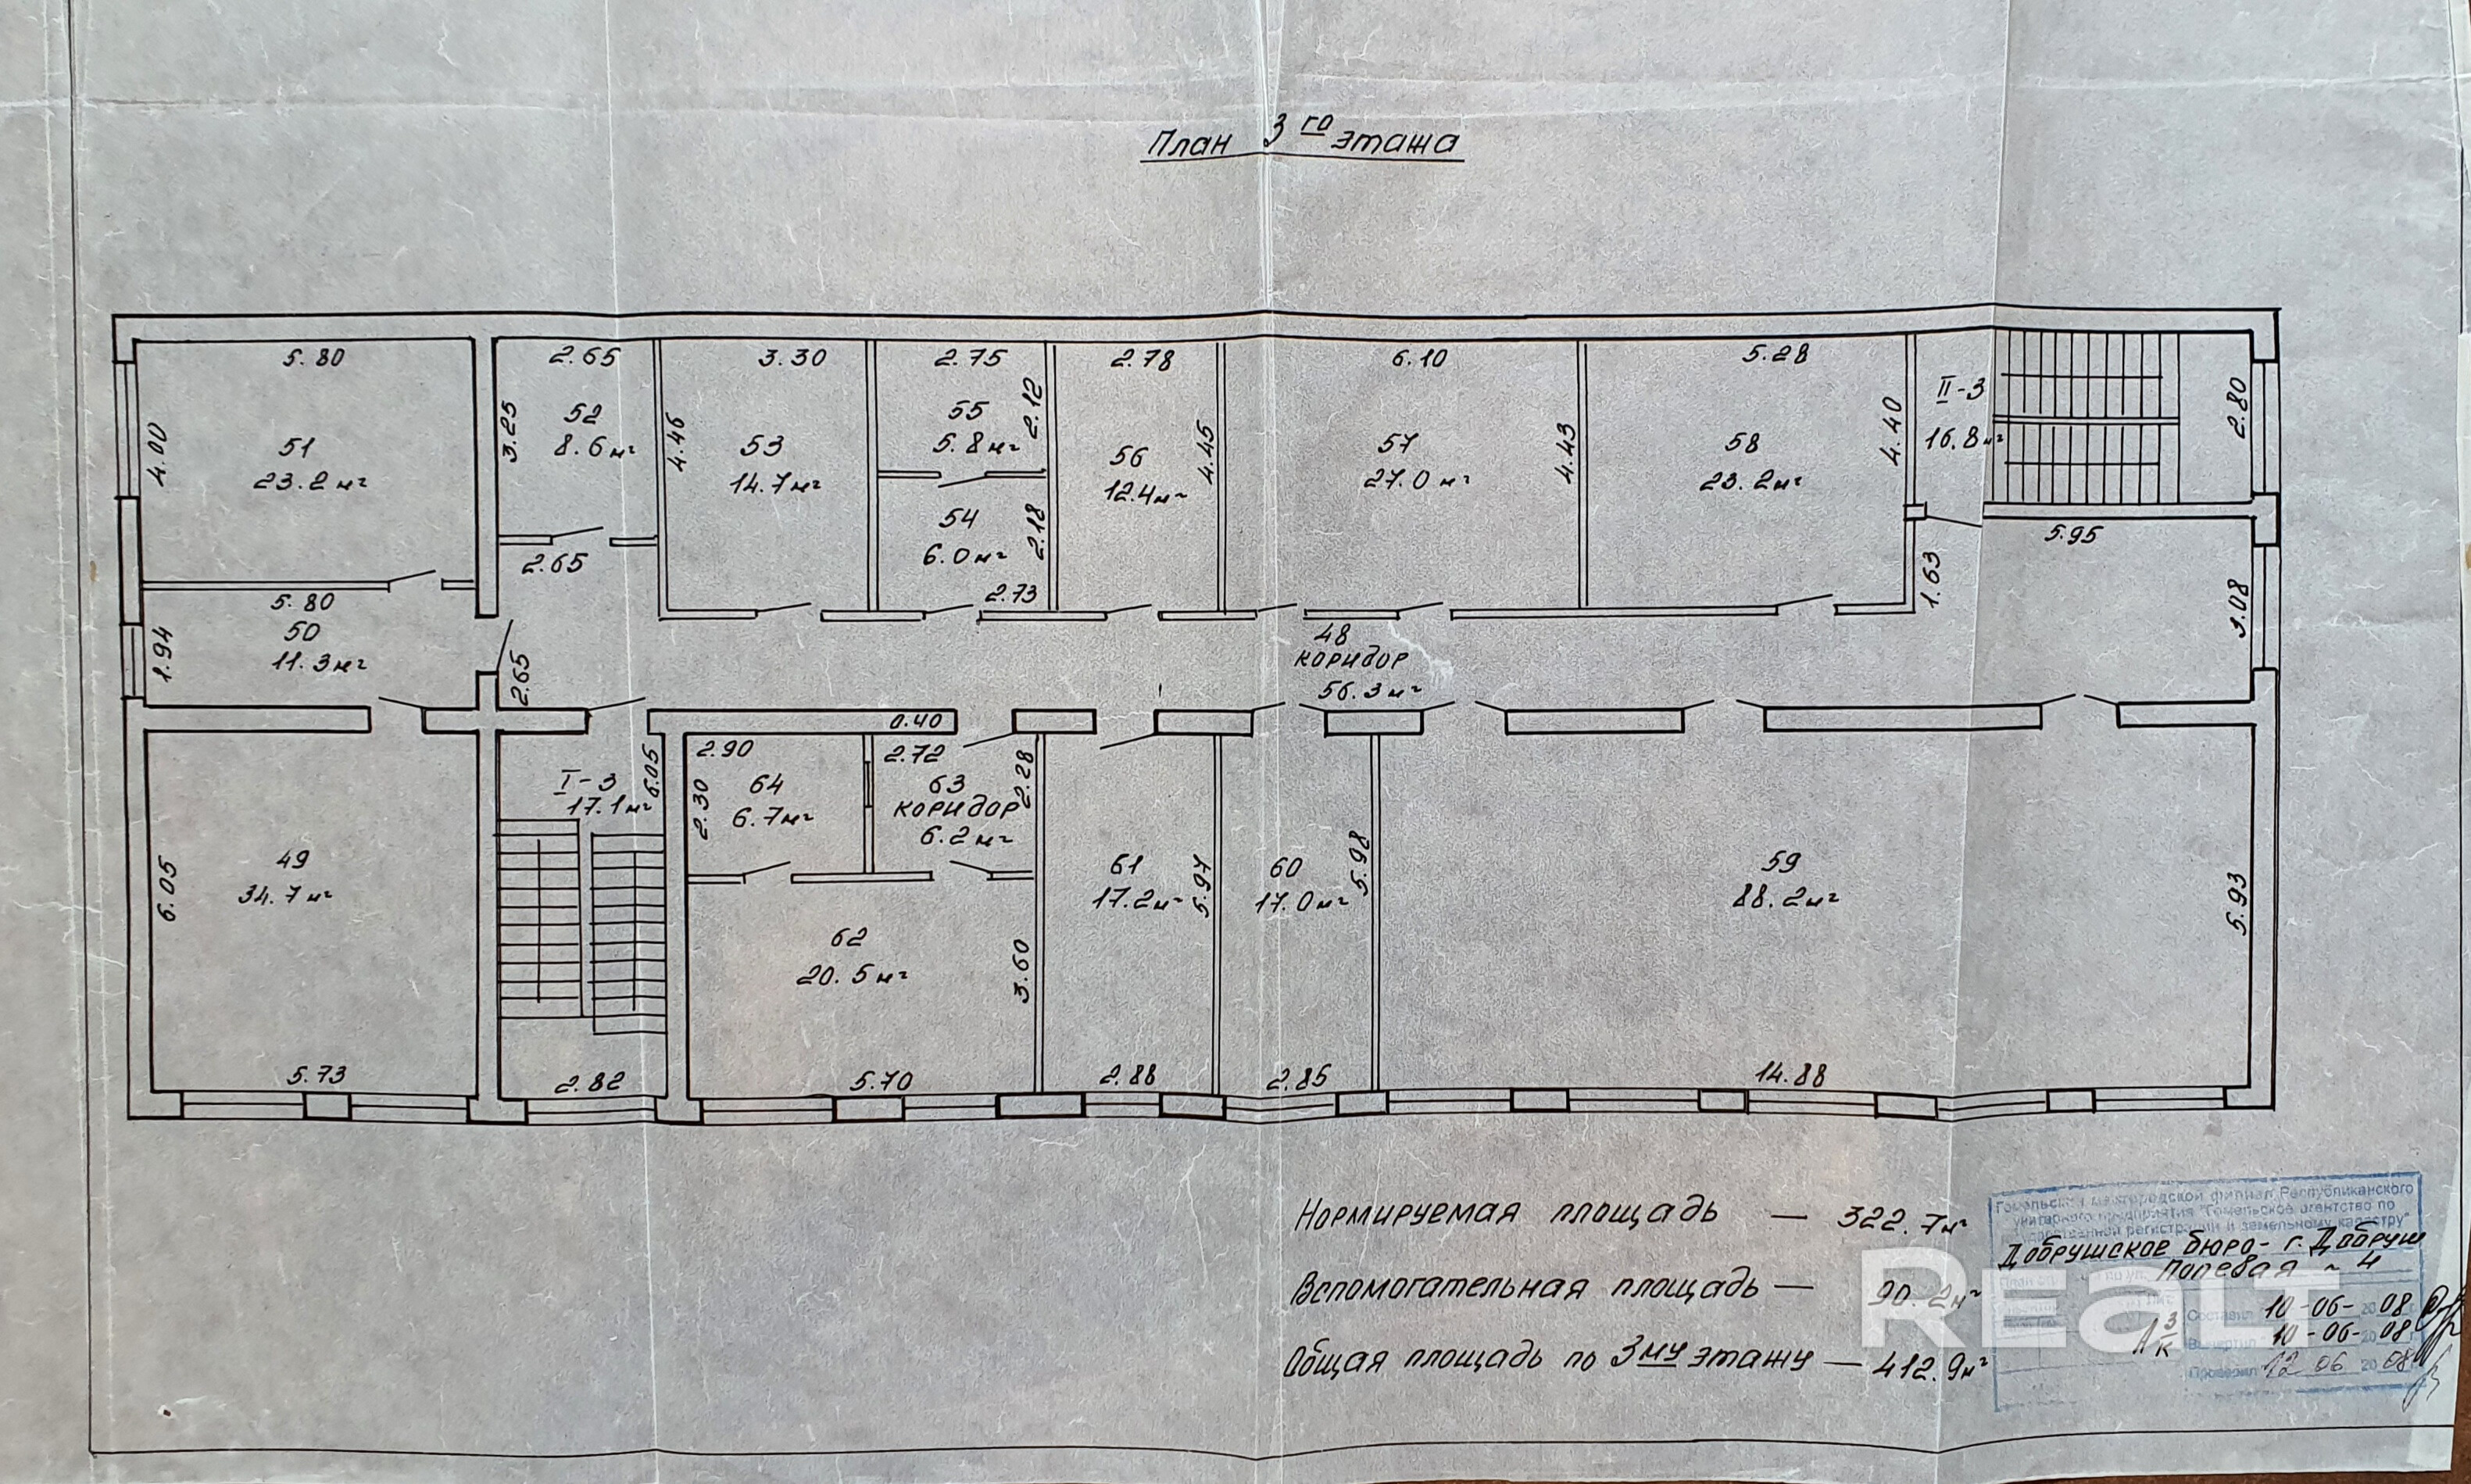 План 3го этажа
5.80
2.65
3.30
2.75
2.78
6.10
5.28
4.00
51
23.2 м²
3.25
52
8.6 м²
4.46
53
14.7 м²
55
5.8 м²
2.12
56
12.4 м²
4.45
57
27.0 м²
4.43
58
23.2 м²
4.40
II-3
16.8 м²
2.80
54
6.0 м²
2.18
2.73
2.65
5.95
1.63
3.08
5.80
50
11.3 м²
1.94
2.65
48
коридор
56.3 м²
0.40
49
34.7 м²
6.05
5.73
I-3
17.1 м²
6.05
2.82
2.90
64
6.7 м²
2.30
2.72
63
коридор
6.2 м²
2.28
62
20.5 м²
3.60
5.70
61
17.2 м²
5.97
2.88
60
17.0 м²
5.98
2.85
59
88.2 м²
5.93
14.88
Нормируемая площадь — 322.7 м²
Вспомогательная площадь — 90.2 м²
Общая площадь по 3му этажу — 412.9 м²
Гомельский межгородской филиал Республиканского
унитарного предприятия "Гомельское агентство по
государственной регистрации и земельному кадастру"
Добрушское бюро - г. Добруш
Полевая
Составил 10-06-2008 г
Вычертил 10-06-2008 г
Проверил 12 06 2008 г
Realt